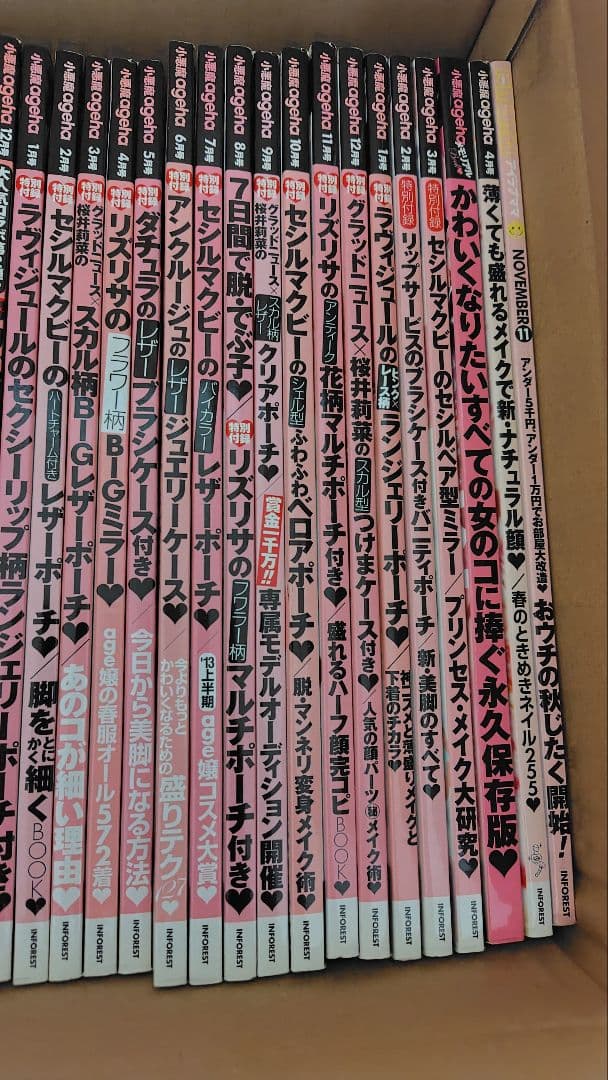 小悪魔ageha 12月号
小悪魔ageha 1月号 特別付録 ラヴィジュールのセクシーリップ柄ランジェリーポーチ付き♥ INFOREST
小悪魔ageha 2月号 特別付録 セシルマクビーのハートチャーム付きレザーポーチ♥/脚をとにかく細くBOOK♥ INFOREST
小悪魔ageha 3月号 特別付録 グラッドニュース×桜井莉菜のスカル柄BIGレザーポーチ♥/あのコが細い理由♥ INFOREST
小悪魔ageha 4月号 特別付録 リズリサのフラワー柄BIGミラー♥/age嬢の春服オール572着♥ INFOREST
小悪魔ageha 5月号 特別付録 ダチュラのレザーブラシケース付き♥/今日から美脚になる方法♥ INFOREST
小悪魔ageha 6月号 特別付録 アンクルージュのレザージュエリーケース♥/今よりもっとかわいくなるための盛りテク127♥ INFOREST
小悪魔ageha 7月号 特別付録 セシルマクビーのバイカラーレザーポーチ♥/'13上半期age嬢コスメ大賞♥ INFOREST
小悪魔ageha 8月号 7日間で脱・でぶ子♥/特別付録 リズリサのフラワー柄マルチポーチ付き♥ INFOREST
小悪魔ageha 9月号 特別付録 グラッドニュース×桜井莉菜のスカル柄レザークリアポーチ♥/賞金一千万!!専属モデルオーディション開催♥ INFOREST
小悪魔ageha 10月号 特別付録 セシルマクビーのシェル型ふわふわベロアポーチ♥/脱・マンネリ変身メイク術♥ INFOREST
小悪魔ageha 11月号 特別付録 リズリサのアンティーク花柄マルチポーチ付き♥/盛れるハーフ顔完コピBOOK♥ INFOREST
小悪魔ageha 12月号 特別付録 グラッドニュース×桜井莉菜のスカル型つけまケース付き♥/人気の顔パーツ㊙メイク術♥ INFOREST
小悪魔ageha 1月号 特別付録 ラヴィジュールのピンク×レース柄ランジェリーポーチ♥/神コスメと薄盛りメイクと下着のチカラ♥ INFOREST
小悪魔ageha 2月号 特別付録 リップサービスのブラシケース付きバニティポーチ/新・美脚のすべて♥ INFOREST
小悪魔ageha 3月号 特別付録 セシルマクビーのセシルベア型ミラー/プリンセス・メイク大研究♥ INFOREST
小悪魔ageha かわいくなりたいすべての女のコに捧ぐ永久保存版♥
小悪魔ageha 4月号 薄くても盛れるメイクで新・ナチュラル顔♥/春のときめきネイル255♥ INFOREST
NOVEMBER 11 アンダー5千円、アンダー1万円でお部屋大改造♥ おウチの秋じたく開始! INFOREST